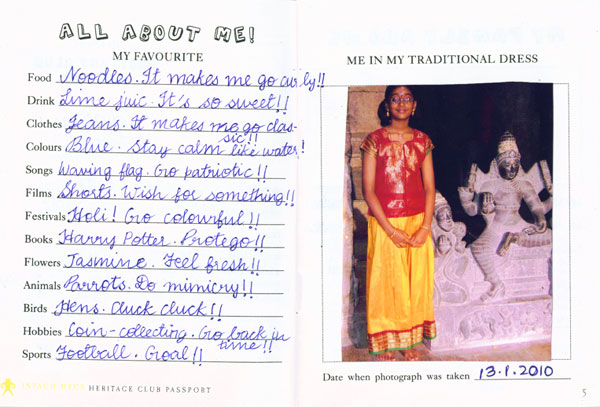 ALL ABOUT ME!
MY FAVOURITE
Food Noodles. It makes me go curly!!
Drink Lime juic. It's so sweet!!
Clothes Jeans. It makes me go clas-
sic!!
Colours Blue. Stay calm like water!
Songs Waving flag. Go patriotic!!
Films Shorts. Wish for something!!
Festivals Holi! Go colourful!!
Books Harry Potter. Protego!!
Flowers Jasmine. Feel fresh!!
Animals Parrots. Do mimicry!!
Birds Hens. Cluck cluck!!
Hobbies Coin-collecting. Go back in
time!!
Sports Football. Goal!!
HERITAGE CLUB PASSPORT
ME IN MY TRADITIONAL DRESS
Date when photograph was taken 13.1.2010
5